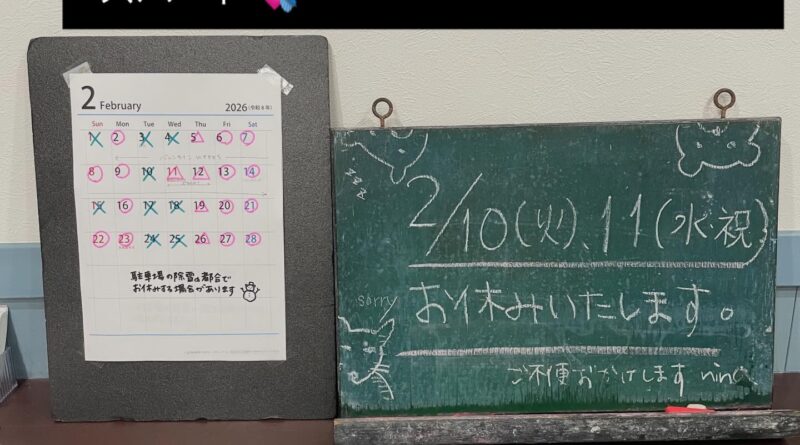 2 February
2026(令和8年)
Sun Mon Tue Wed Thu Fri Sat
1 2 3 4 5 6 7
8 9 10 11 12 13 14
15 16 17 18 19 20 21
22 23 24 25 26 27 28
駐車場の除雪の都合で
お休みする場合があります
2/10(火)、11(水・祝)
sorry
お休みいたします。
ご不便おかけします nino